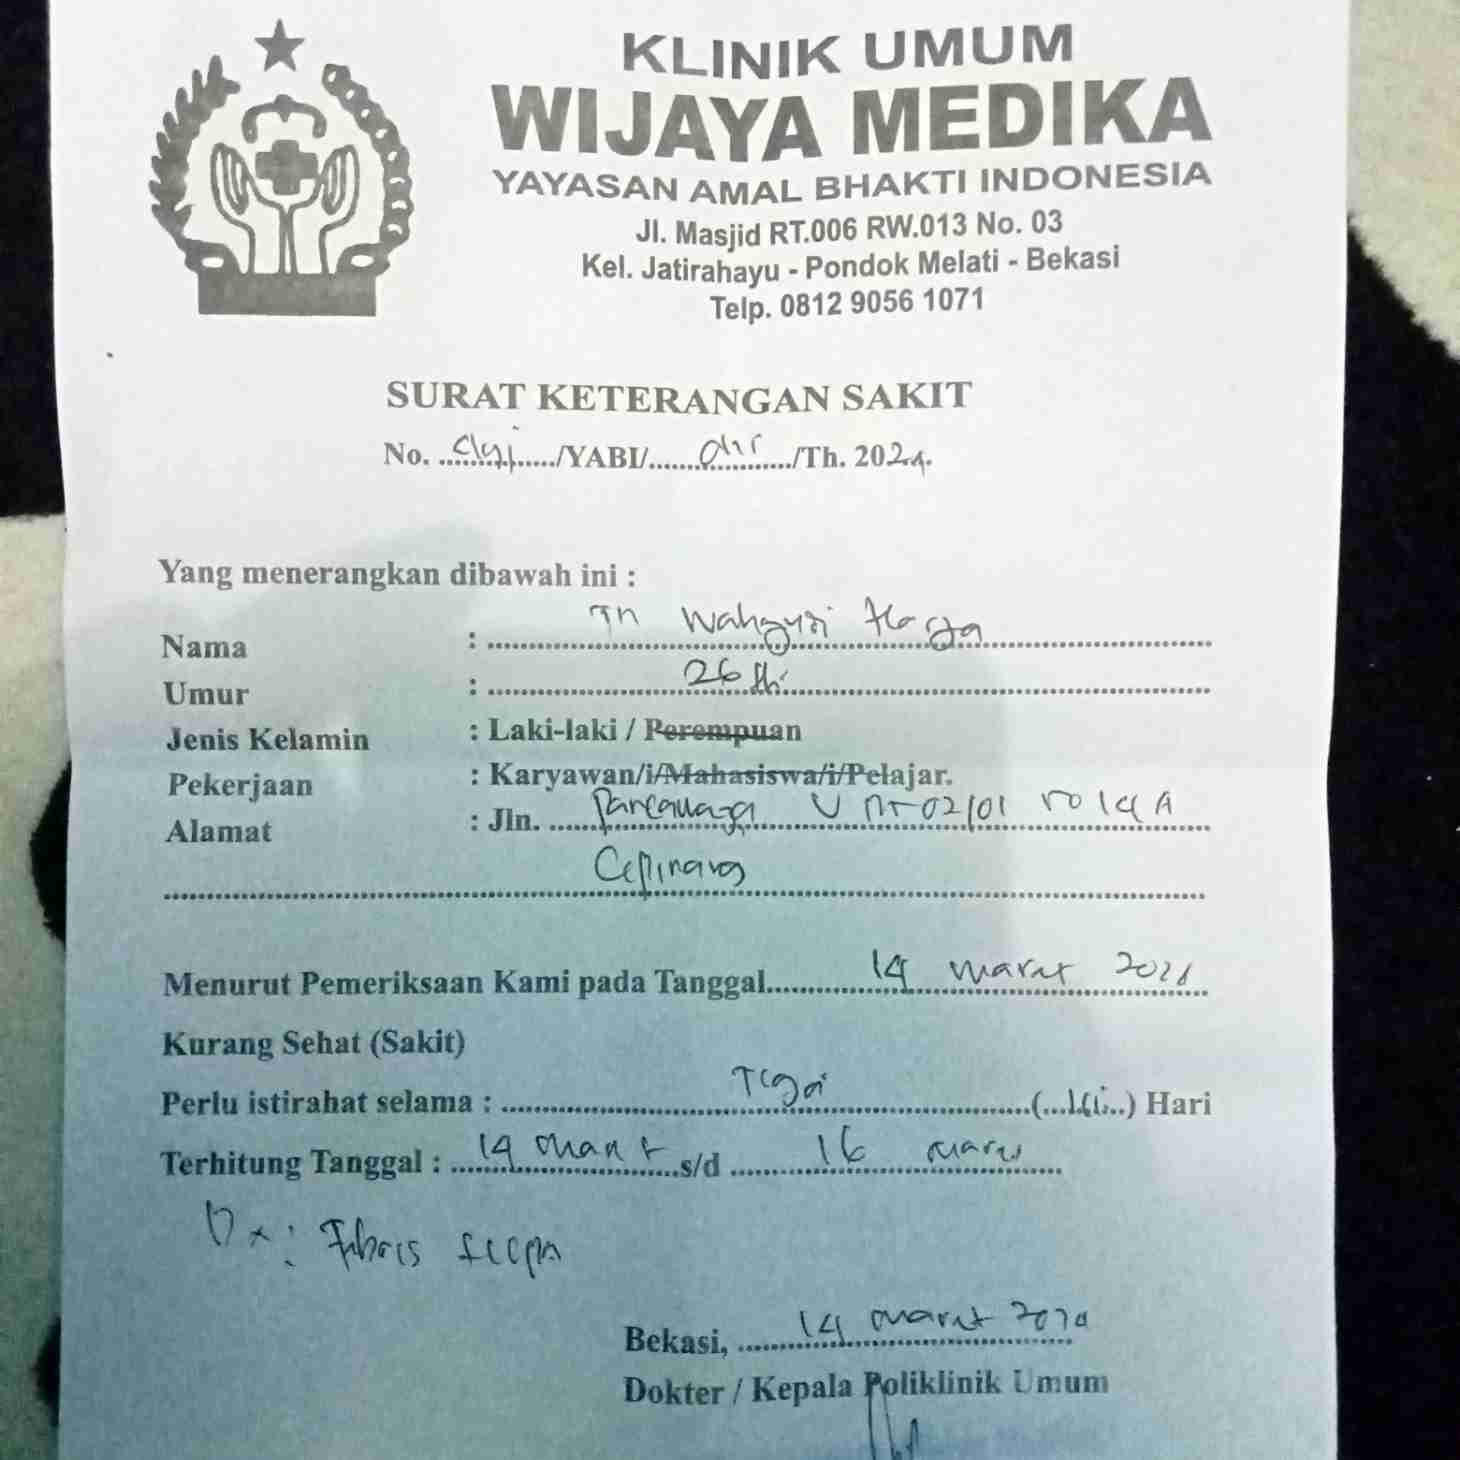 KLINIK UMUM
WIJAYA MEDIKA
YAYASAN AMAL BHAKTI INDONESIA
Jl. Masjid RT.006 RW.013 No. 03
Kel. Jatirahayu - Pondok Melati - Bekasi
Telp. 0812 9056 1071
SURAT KETERANGAN SAKIT
No. ............/YABI/............/Th. 2024.
Yang menerangkan dibawah ini :
Nama : Tn Wahyudi
Umur : 26 th
Jenis Kelamin : Laki-laki / Perempuan
Pekerjaan : Karyawan/i/Mahasiswa/i/Pelajar.
Alamat : Jln. ...... 02/01 no 14 A
Cipinang
Menurut Pemeriksaan Kami pada Tanggal...... 14 maret 2024
Kurang Sehat (Sakit)
Perlu istirahat selama : ...... Tiga ......(......) Hari
Terhitung Tanggal : 14 maret s/d 16 maret
Dx : Febris
Bekasi, 14 maret 2024
Dokter / Kepala Poliklinik Umum